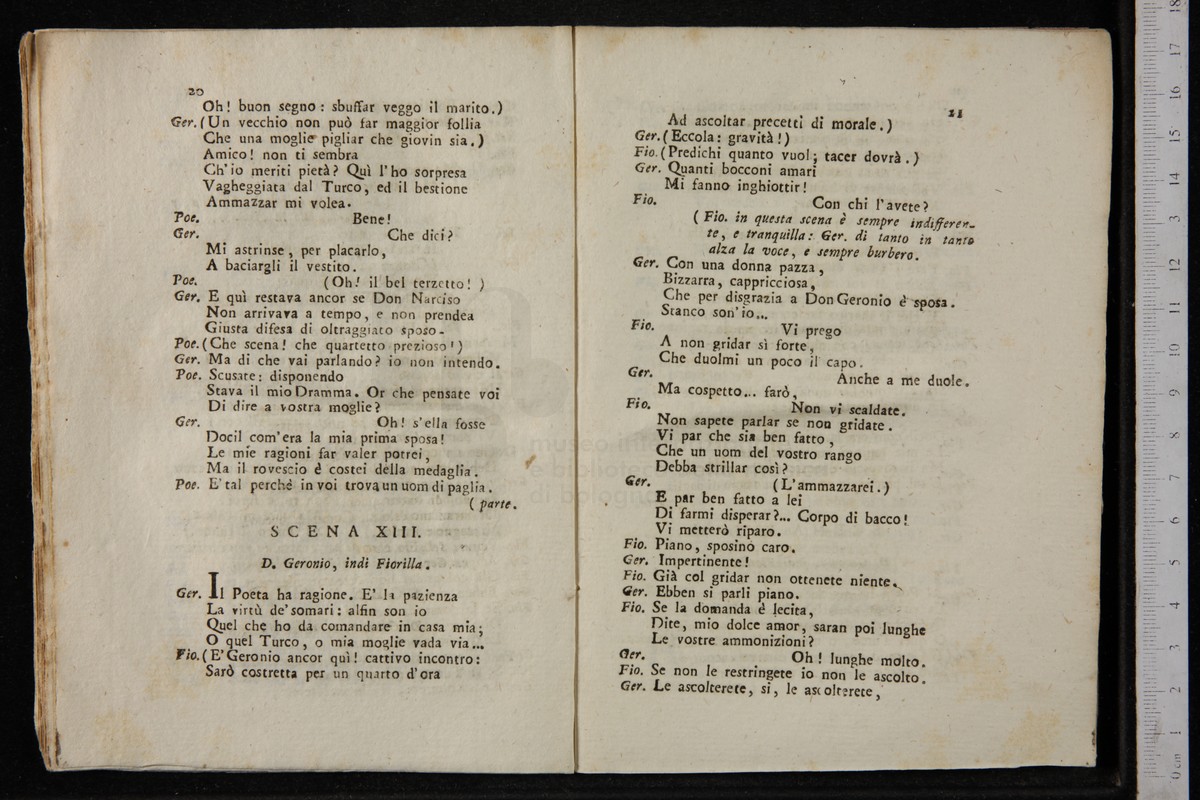 20
Oh! buon segno: sbuffar veggo il marito.)
Ger. (Un vecchio non può far maggior follia
Che una moglie pigliar che giovin sia.)
Amico! non ti sembra
Ch'io meriti pietà? Quì l'ho sorpresa
Vagheggiata dal Turco, ed il bestione
Ammazzar mi volea.
Poe. Bene!
Ger. Che dici?
Mi astrinse, per placarlo,
A baciargli il vestito.
Poe. (Oh! il bel terzetto! )
Ger. E quì restava ancor se Don Narciso
Non arrivava a tempo, e non prendea
Giusta difesa di oltraggiato sposo.
Poe. (Che scena! che quartetto prezioso!)
Ger. Ma di che vai parlando? io non intendo.
Poe. Scusate: disponendo
Stava il mio Dramma. Or che pensate voi
Di dire a vostra moglie?
Ger. Oh! s'ella fosse
Docil com'era la mia prima sposa!
Le mie ragioni far valer potrei,
Ma il rovescio è costei della medaglia.
Poe. E' tal perchè in voi trova un uom di paglia.
( parte.
SCENA XIII.
D. Geronio, indi Fiorilla.
Ger. Il Poeta ha ragione. E' la pazienza
La virtù de' somari: alfin son io
Quel che ho da comandare in casa mia;
O quel Turco, o mia moglie vada via...
Fio. (E' Geronio ancor quì! cattivo incontro:
Sarò costretta per un quarto d'ora
21
Ad ascoltar precetti di morale.)
Ger. (Eccola: gravità!)
Fio. (Predichi quanto vuol; tacer dovrà.)
Ger. Quanti bocconi amari
Mi fanno inghiottir!
Fio. Con chi l'avete?
( Fio. in questa scena è sempre indifferen-
te, e tranquilla: Ger. di tanto in tanto
alza la voce, e sempre burbero.
Ger. Con una donna pazza,
Bizzarra, cappricciosa,
Che per disgrazia a Don Geronio è sposa.
Stanco son' io...
Fio. Vi prego
A non gridar sì forte,
Che duolmi un poco il capo.
Ger. Anche a me duole.
Ma cospetto... farò,
Fio. Non vi scaldate.
Non sapete parlar se non gridate.
Vi par che sia ben fatto,
Che un uom del vostro rango
Debba strillar così?
Ger. (L'ammazzarei.)
E par ben fatto a lei
Di farmi disperar?... Corpo di bacco!
Vi metterò riparo.
Fio. Piano, sposino caro.
Ger. Impertinente!
Fio. Già col gridar non ottenete niente.
Ger. Ebben si parli piano.
Fio. Se la domanda è lecita,
Dite, mio dolce amor, saran poi lunghe
Le vostre ammonizioni?
Ger. Oh! lunghe molto.
Fio. Se non le restringete io non le ascolto.
Ger. Le ascolterete, si, le ascolterete,